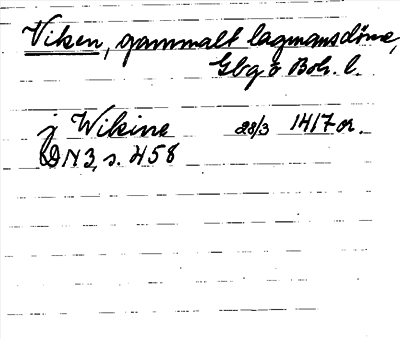 Viken, gammalt lagmansdöme,
Gbg o Boh. l.
j Wikine 28/3 1417 or.
DN 3, s. 458